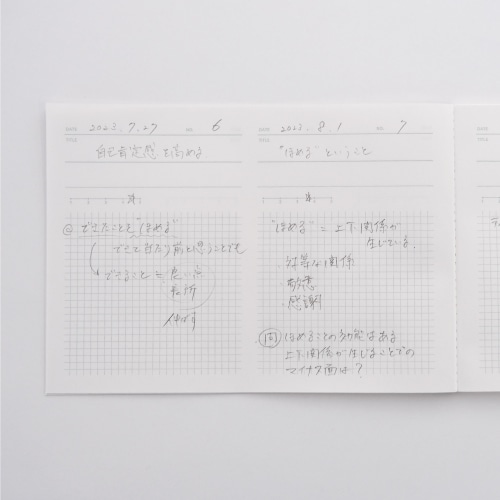 DATE 2023.7.27 NO. 6
TITLE
自己肯定感を高める
◎ できたことを"ほめる"
できて当たり前と思うことでも
できること = 良い点
長所
伸ばす
DATE 2023.8.1 NO. 7
TITLE
"ほめる"ということ
"ほめる" = 上下関係が
生じている.
・対等な関係
・敬意
・感謝
問 ほめることの効能はある
上下関係が生じることでの
マイナス面は?